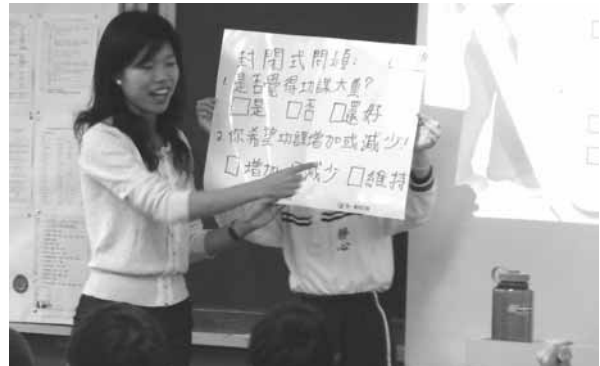 封閉式問題:
1.是否覺得功課太重?
□是 □否 □還好
2.你希望功課增加或減少?
□增加 □減少 □維持